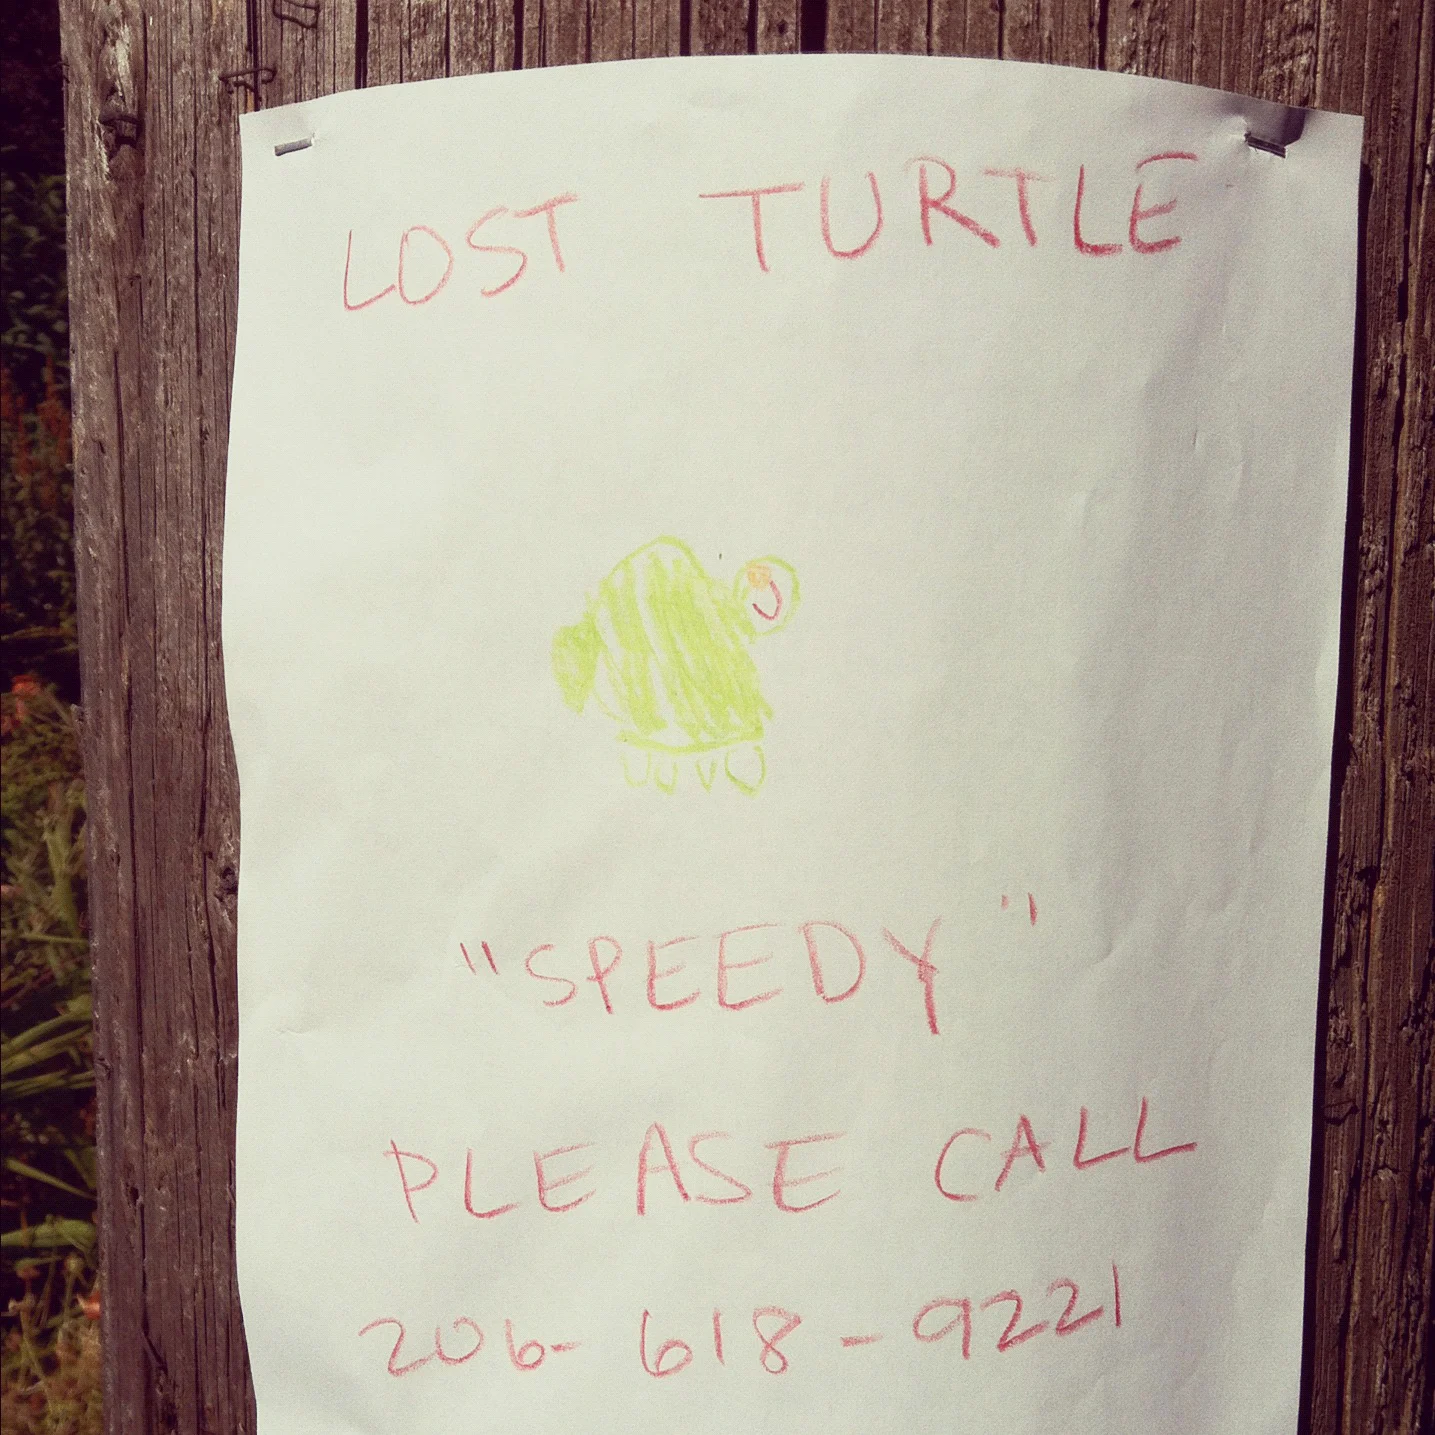 LOST TURTLE
"SPEEDY"
PLEASE CALL
206-618-9221